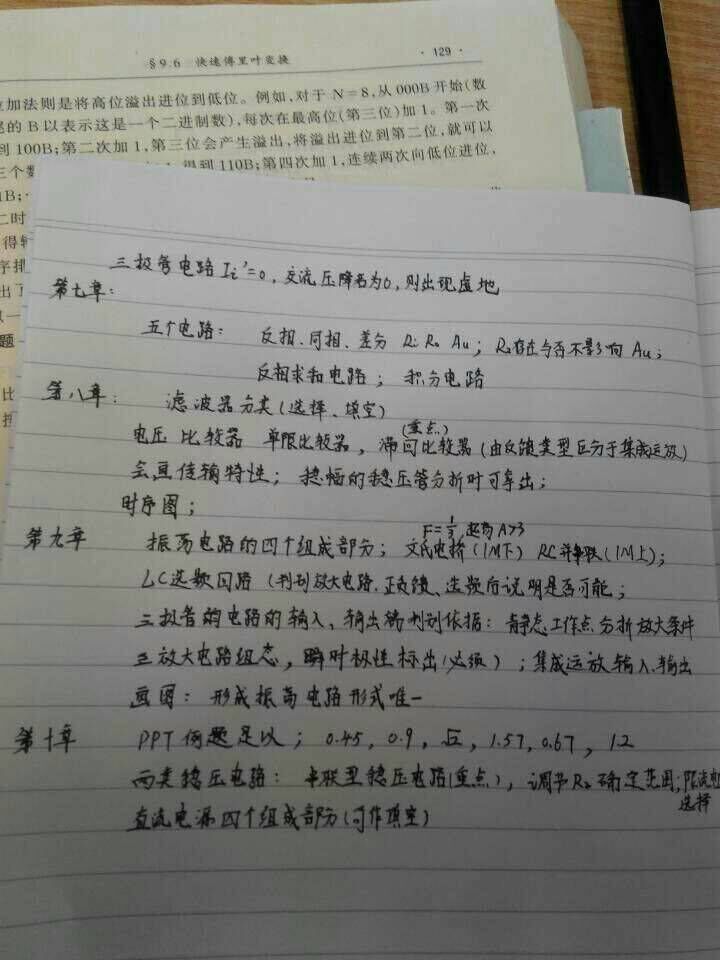 §9.6 快速傅里叶变换 · 129 ·
位加法则是将高位溢出进位到低位。例如,对于 N=8,从 000B 开始(数
尾的 B 以表示这是一个二进制数),每次在最高位(第三位)加 1。第一次
到 100B;第二次加 1,第三位会产生溢出,将溢出进位到第二位,就可以
三个数 得到 110B;第四次加 1,连续两次向低位进位,
1B;
二时
得转
序排
出了
题
比
三极管电路 Ii'=0, 交流压降名为0, 则出现虚地
第七章:
五个电路: 反相、同相、差分 Ri Ro Au; 存在与否不影响 Au;
反相求和电路; 积分电路
第八章: 滤波器分类(选择、填空)
(重点)
电压比较器 单限比较器, 滞回比较器(由反馈类型区分于集成运放)
会画传输特性; 稳幅的稳压管分析时可拿出;
时序图;
F=1/3, 起荡 A>3
第九章 振荡电路的四个组成部分; 文氏电桥(1M下) RC并串联(1M上);
LC选频回路(判别放大电路、正反馈、选频后说明是否可能;
三极管的电路的输入、输出端判别依据: 静态工作点分析放大条件
三放大电路组态, 瞬时极性标出(必须); 集成运放输入输出
画图: 形成振荡电路形式唯一
第十章 PPT例题足以; 0.45, 0.9, √2, 1.57, 0.67, 1.2
两类稳压电路: 串联型稳压电路(重点), 调节R2确定范围; 限流电
选择
直流电源四个组成部分(可作填空)